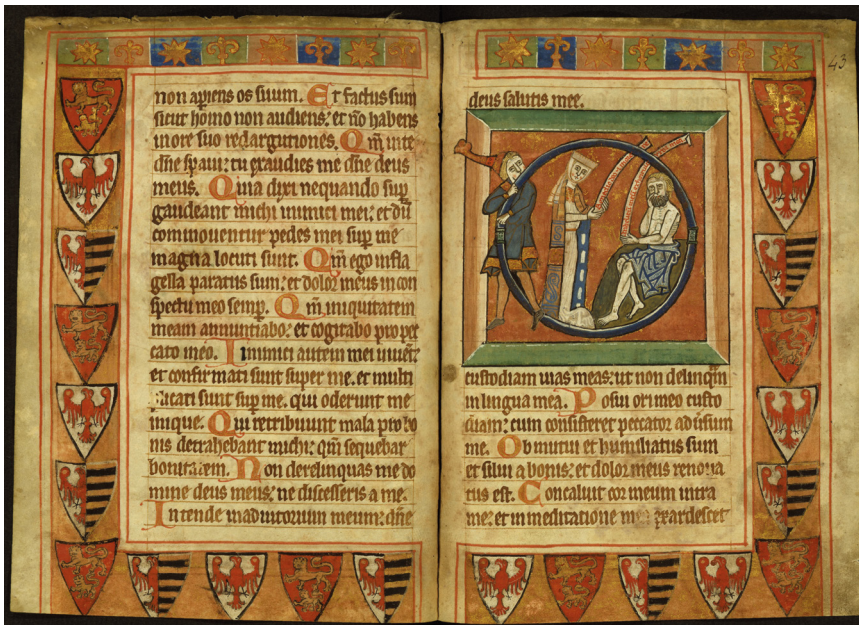 non aperiens os suum. Et factus sum
sicut homo non audiens: et nō habens
in ore suo redargutiones. Qm̄ in te
dn̄e spaui: tu exaudies me dn̄e deus
meus. Quia dixi nequando sup
gaudeant michi inimici mei: et dū
commouentur pedes mei sup me
magna locuti sunt. Qm̄ ego in fla
gella paratus sum: et dolor meus in con
spectu meo semp. Qm̄ iniquitatem
meam annuntiabo: et cogitabo pro pec
cato meo. Inimici autem mei uiuēt
et confirmati sunt super me. et multi
plicati sunt sup me. qui oderunt me
inique. Qui retribuunt mala pro bo
nis detrahebant michi: qm̄ sequebar
bonitatem. Non derelinquas me do
mine deus meus: ne discesseris a me.
Intende in adiutorium meum: dn̄e
43
deus salutis mee.
custodiam uias meas: ut non delinquā
in lingua mea. Posui ori meo custo
diam: cum consisteret peccator aduersum
me. Obmutui et humiliatus sum
et silui a bonis: et dolor meus renoua
tus est. Concaluit cor meum intra
me: et in meditatione exardescet